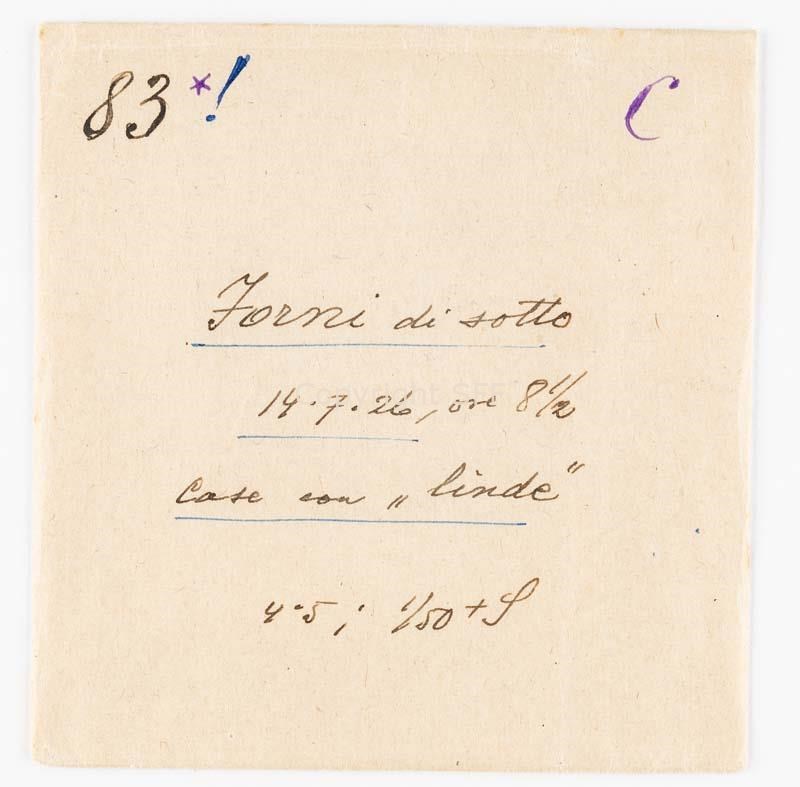 83*! C
Forni di sotto
14.7.26, ore 8 1/2
Case con „linde"
4·5; 1/50 + S